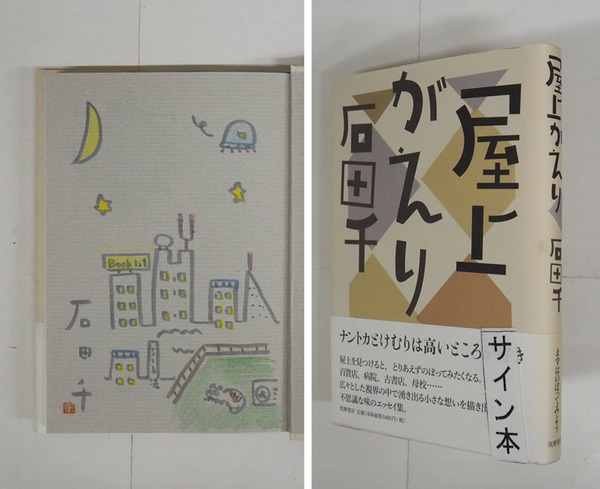 Book 1と1
石田千
屋上
がえり
石田千
ナントカとけむりは高いところ
き
屋上を見つけると、とりあえずのぼってみたくなる。
百貨店、病院、古書店、母校……
広々とした視界の中で湧き出る小さな想いを描き出
不思議な味のエッセイ集。
筑摩書房 定価(本体価格1400円+税)
サイン本
屋上がえり 石田千
まずはのぼってみよう